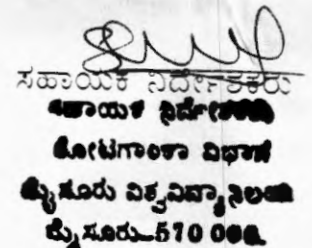 ಸಹಾಯಕ ನಿರ್ದೇಶಕರು
ಸಹಾಯಕ ನಿರ್ದೇಶಕರು
ತೋಟಗಾರಿಕಾ ವಿಭಾಗ
ಮೈಸೂರು ವಿಶ್ವವಿದ್ಯಾನಿಲಯ
ಮೈಸೂರು-570 006.